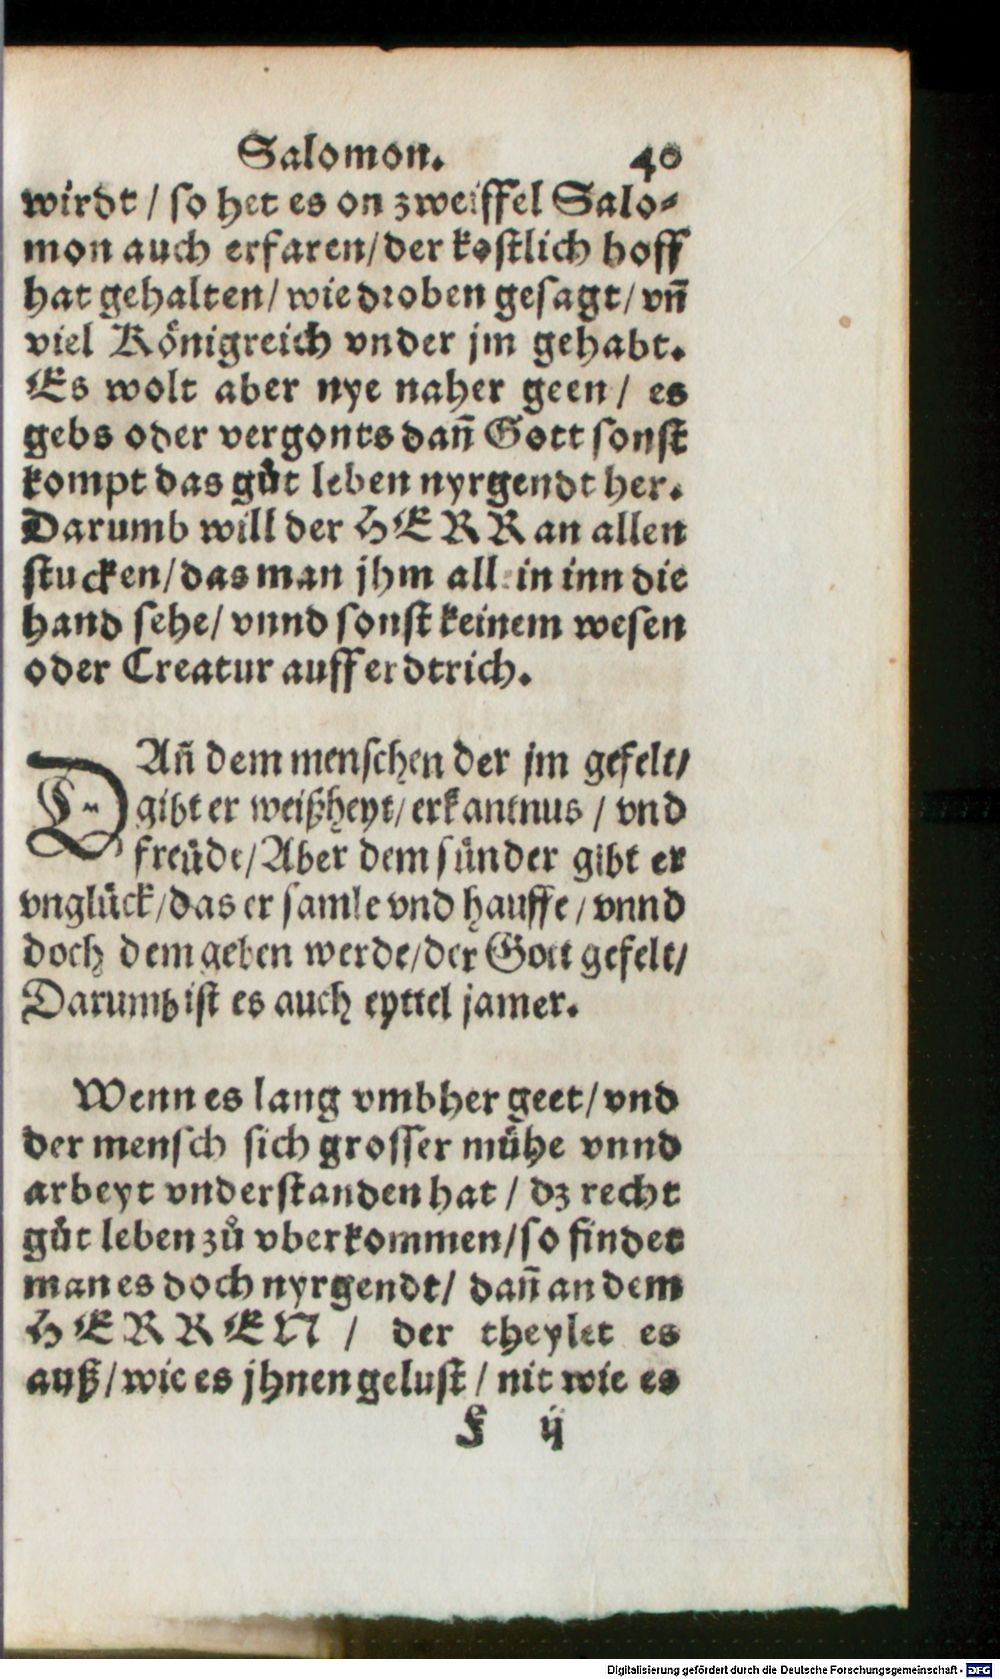 Salomon. 40
wirdt / so het es on zweiffel Salo⸗
mon auch erfaren/ der kostlich hoff
hat gehalten/ wie droben gesagt/ vn̄
viel Königreich vnder jm gehabt.
Es wolt aber nye naher geen / es
gebs oder vergonts dan̄ Gott sonst
kompt das gůt leben nyrgendt her.
Darumb will der HERR an allen
stucken/ das man jhm allein inn die
hand sehe/ vnnd sonst keinem wesen
oder Creatur auff erdtrich.
DAn̄ dem menschen der jm gefelt/
gibt er weißheyt/ erkantnus / vnd
freüde/ Aber dem sünder gibt er
vnglück/ das er samle vnd hauffe / vnnd
doch dem geben werde/ der Gott gefelt/
Darumb ist es auch eyttel jamer.
Wenn es lang vmbher geet/ vnd
der mensch sich grosser mühe vnnd
arbeyt vnderstanden hat / dz recht
gůt leben zů vberkommen/ so findet
man es doch nyrgendt/ dan̄ an dem
HERREN / der theylet es
auß/ wie es jhnen gelust / nit wie es
F ij
Digitalisierung gefördert durch die Deutsche Forschungsgemeinschaft - DFG